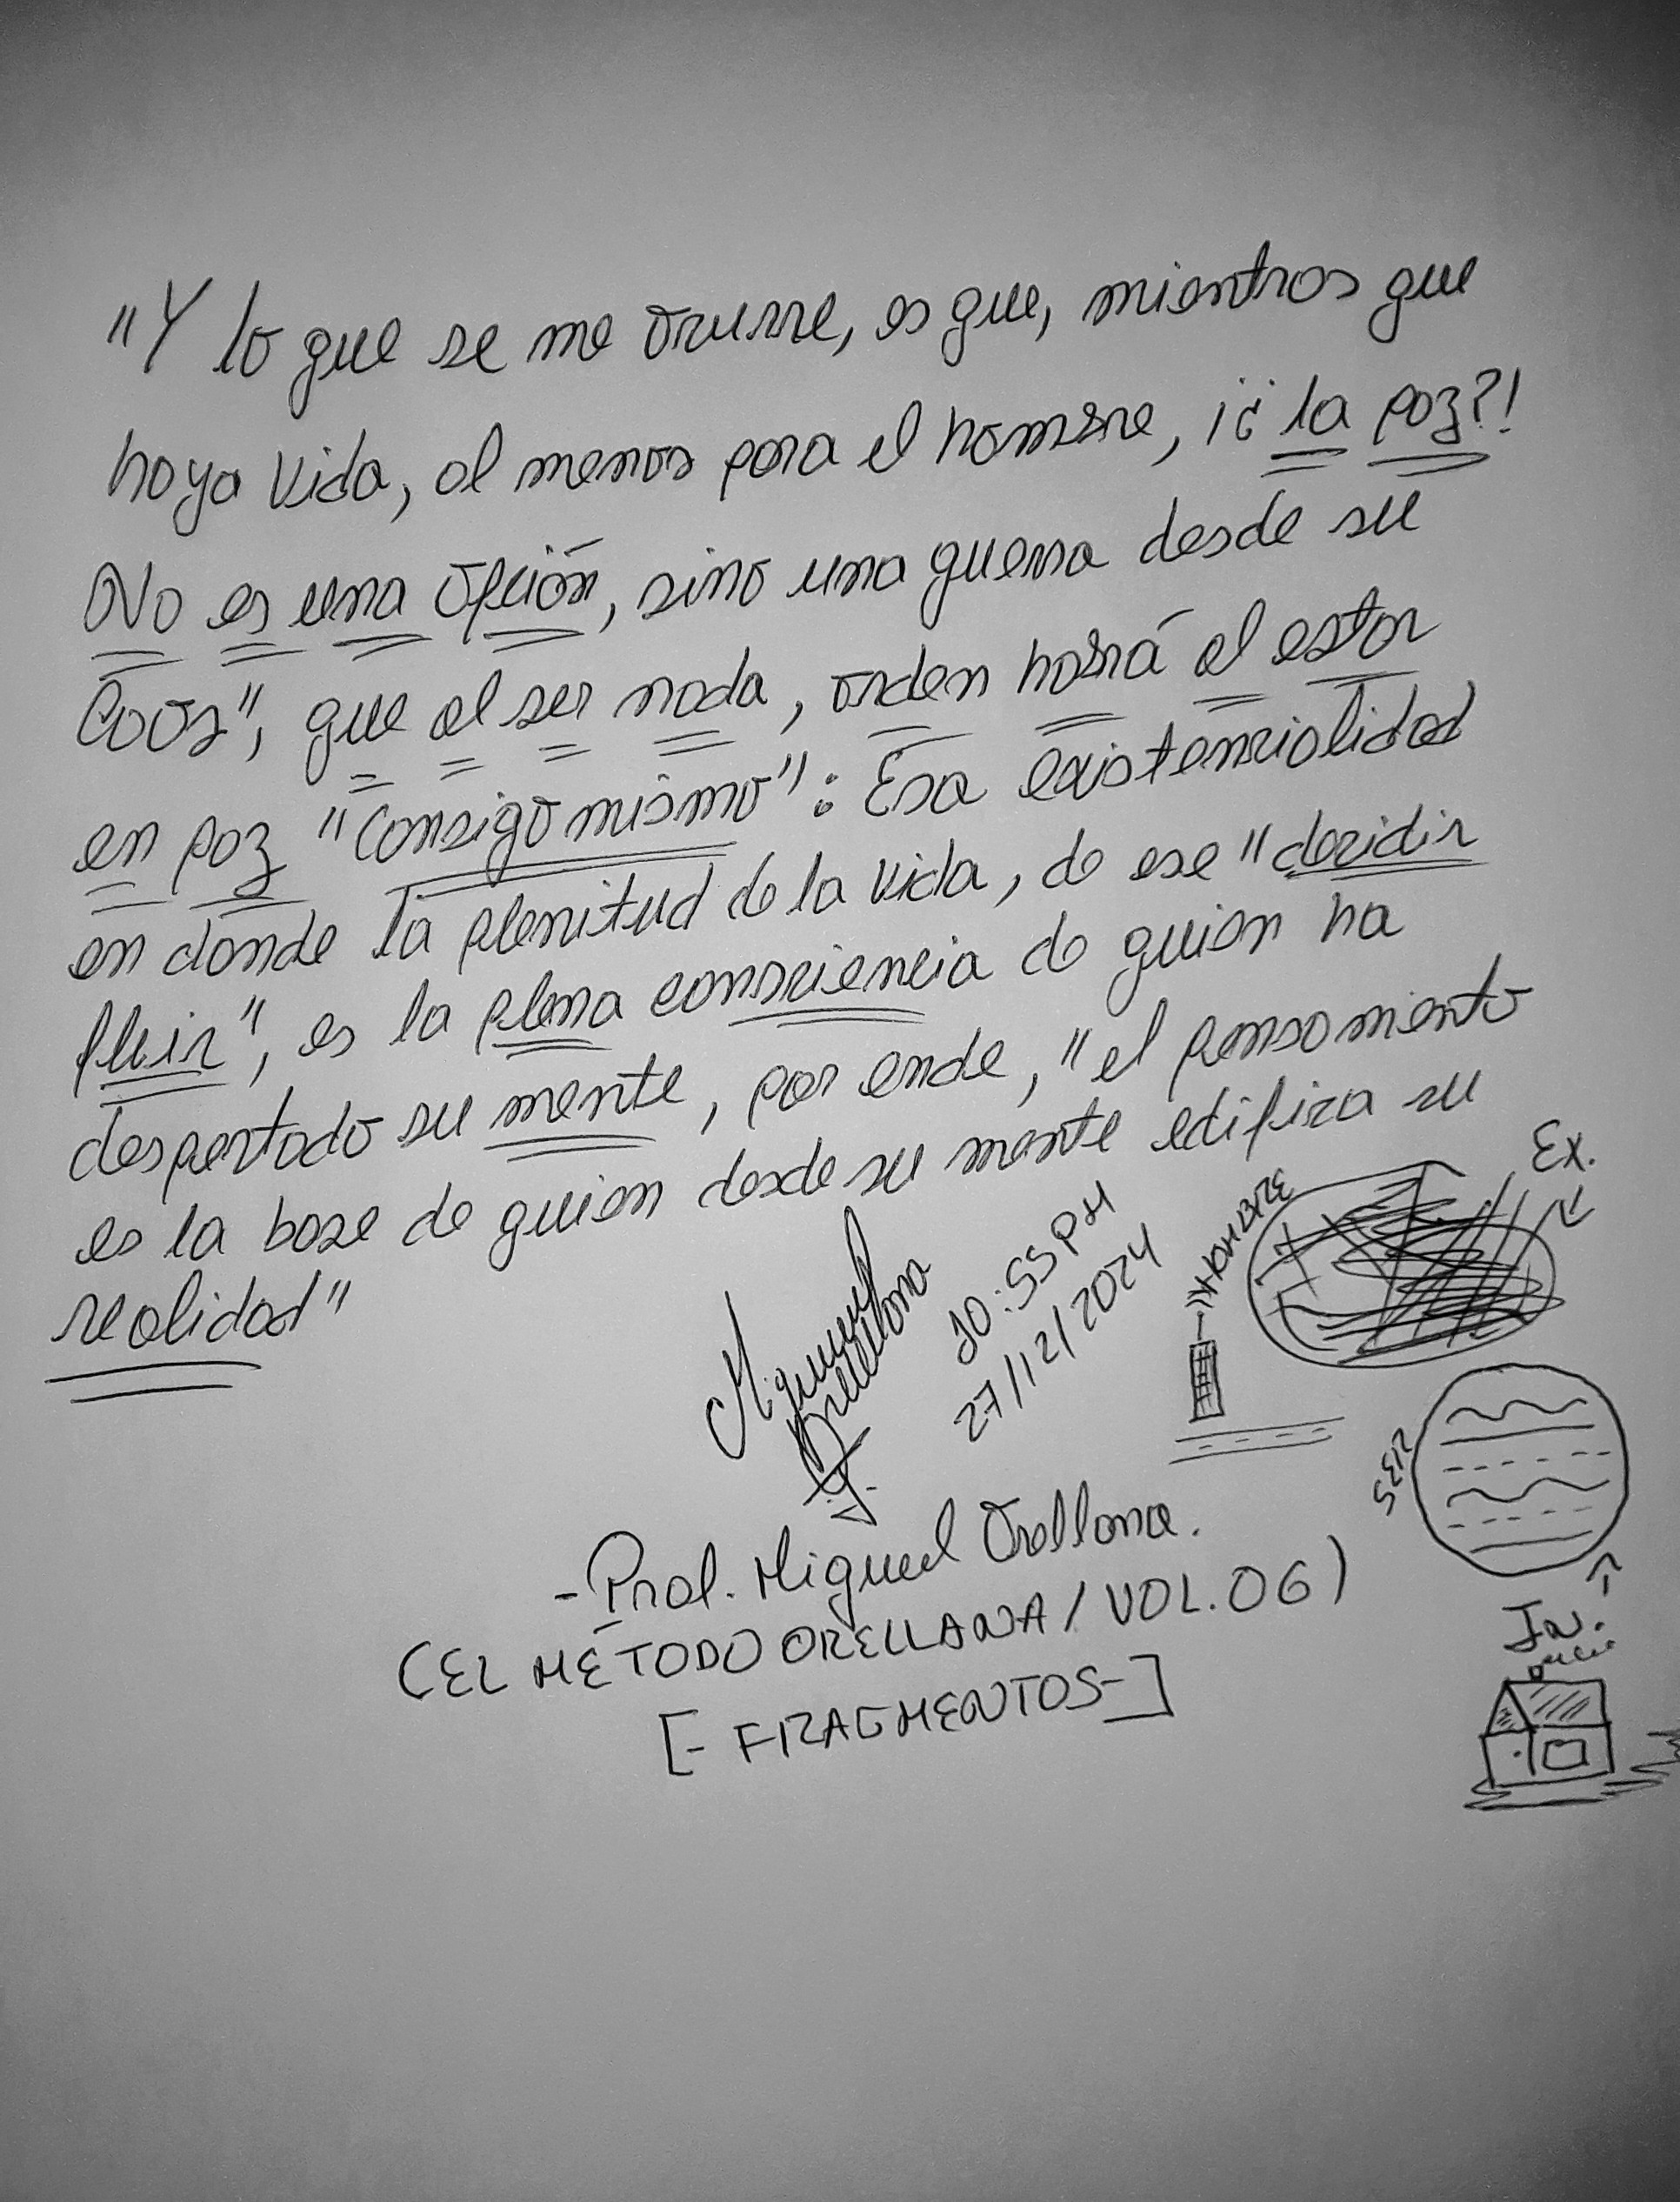 "Y lo que se me ocurre, es que, mientras que
haya vida, al menos para el hombre, ¡¿la paz?!
No es una opción, sino una guerra desde su
Caos", que al ser nada, orden habrá al estar
en paz "consigo mismo": Esa existencialidad
en donde la plenitud de la vida, de ese "decidir
fluir", es la plena consciencia de quien ha
despertado su mente, por ende, "el pensamiento
es la base de quien desde su mente edifica su
realidad"
Miguel
Orellana
10:55 PM
27/12/2024
HOMBRE
Ex.
SER
In.
-Prof. Miguel Orellana.
(EL MÉTODO ORELLANA / VOL. 06)
[- FRAGMENTOS-]